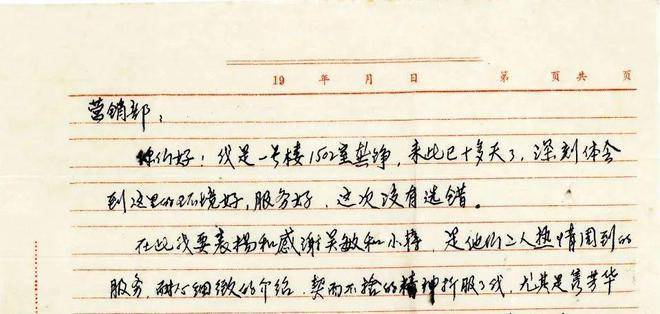 19 年 月 日 第 页共 页
营销部：
你们好！我是一号楼1502室龚铮，来此已十多天了，深刻体会
到这里的环境好，服务好，这次没有选错。
在此我要表扬和感谢吴敏和小特，是他们二人热情周到的
服务，耐心细致的介绍，契而不捨的精神折服了我，尤其是 芳华